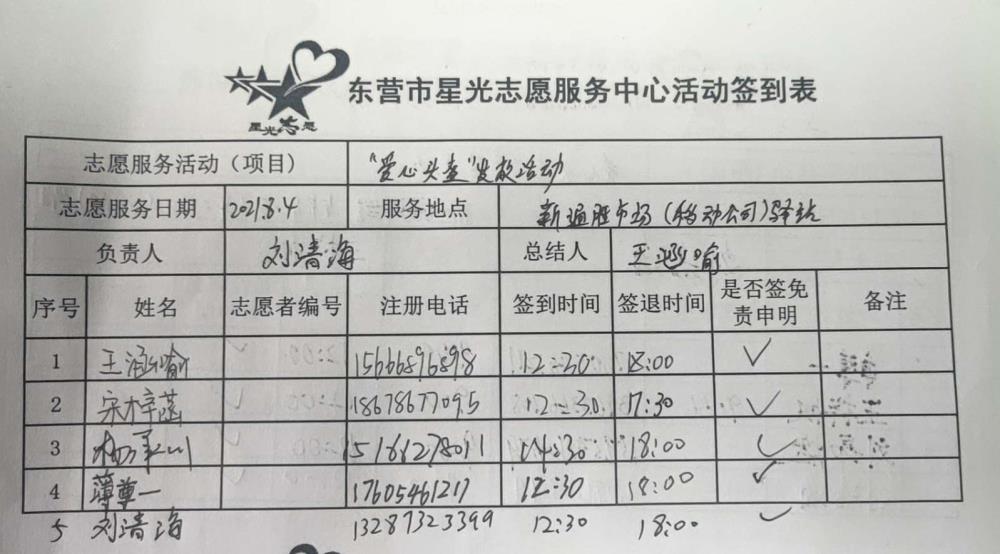 星光志愿
东营市星光志愿服务中心活动签到表
志愿服务活动（项目） "爱心头盔"发放活动
志愿服务日期 2021.8.4 服务地点 新通胜市场（移动公司）驿站
负责人 刘清海 总结人 王涵喻
序号 姓名 志愿者编号 注册电话 签到时间 签退时间 是否签免责申明 备注
1 王涵喻 15666896898 12:30 18:00 ✓
2 宋梓菡 18678677095 12:30 17:30 ✓
3 15166127801 14:30 18:00 ✓
4 薄尊一 17605461217 12:30 18:00 ✓
5 刘清海 13287323399 12:30 18:00 ✓